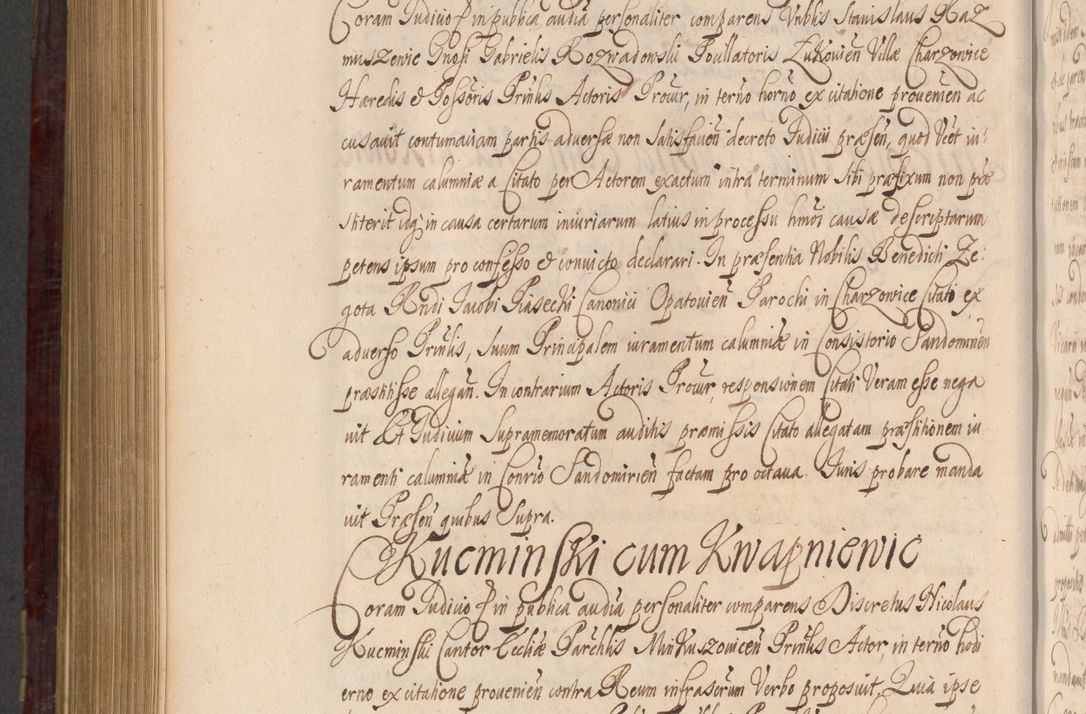 Coram Judicio & in publica audia personaliter comparens Nobilis Stanislaus Raz
muszewic Gnosi Gabrielis Rozwadowski Poullatoris Zukovien Villæ Charzowice
Hæredis & Possoris Prinlis Actoris Procur, in termo horno ex citatione provenien ac
cusavit contumaciam partis adversæ non satisfacien decreto Judicii præsen, quod Vcet iu
ramentum calumniæ a Citato per Actorem exactum intra terminum sibi præfixum non præ
stiterit idq in causa certarum iniuriarum latius in processu hmoi causæ descriptarum
petens ipsum pro confesso & convicto declarari. In præsentia Nobilis Benedicti Ze
gota Rndi Jacobi Piasecki Canonici Opatovien Parochi in Charzowice Citati ex
adverso Prinlis, suum Principalem iuramentum calumniæ in Consistorio Sandomirien
præstitisse allegan. In contrarium Actoris Procur, responsionem Citati Veram esse nega
vit Et Judicium supramemoratum auditis præmissis Citato allegatam præstitionem iu
ramenti calumniæ in Conrio Sandomirien factam pro octava Juris probare manda
vit Præsen quibus supra.
Kucminski cum Kwapniewic
Coram Judicio & in publica audia personaliter comparens Discretus Nicolaus
Kucminski Cantor Eccliæ Parchlis Minkuszovicen Prinlis Actor, in termo hodi
erno ex citatione provenien contra Reum infrascrum Verbo proposuit, Quia ipse